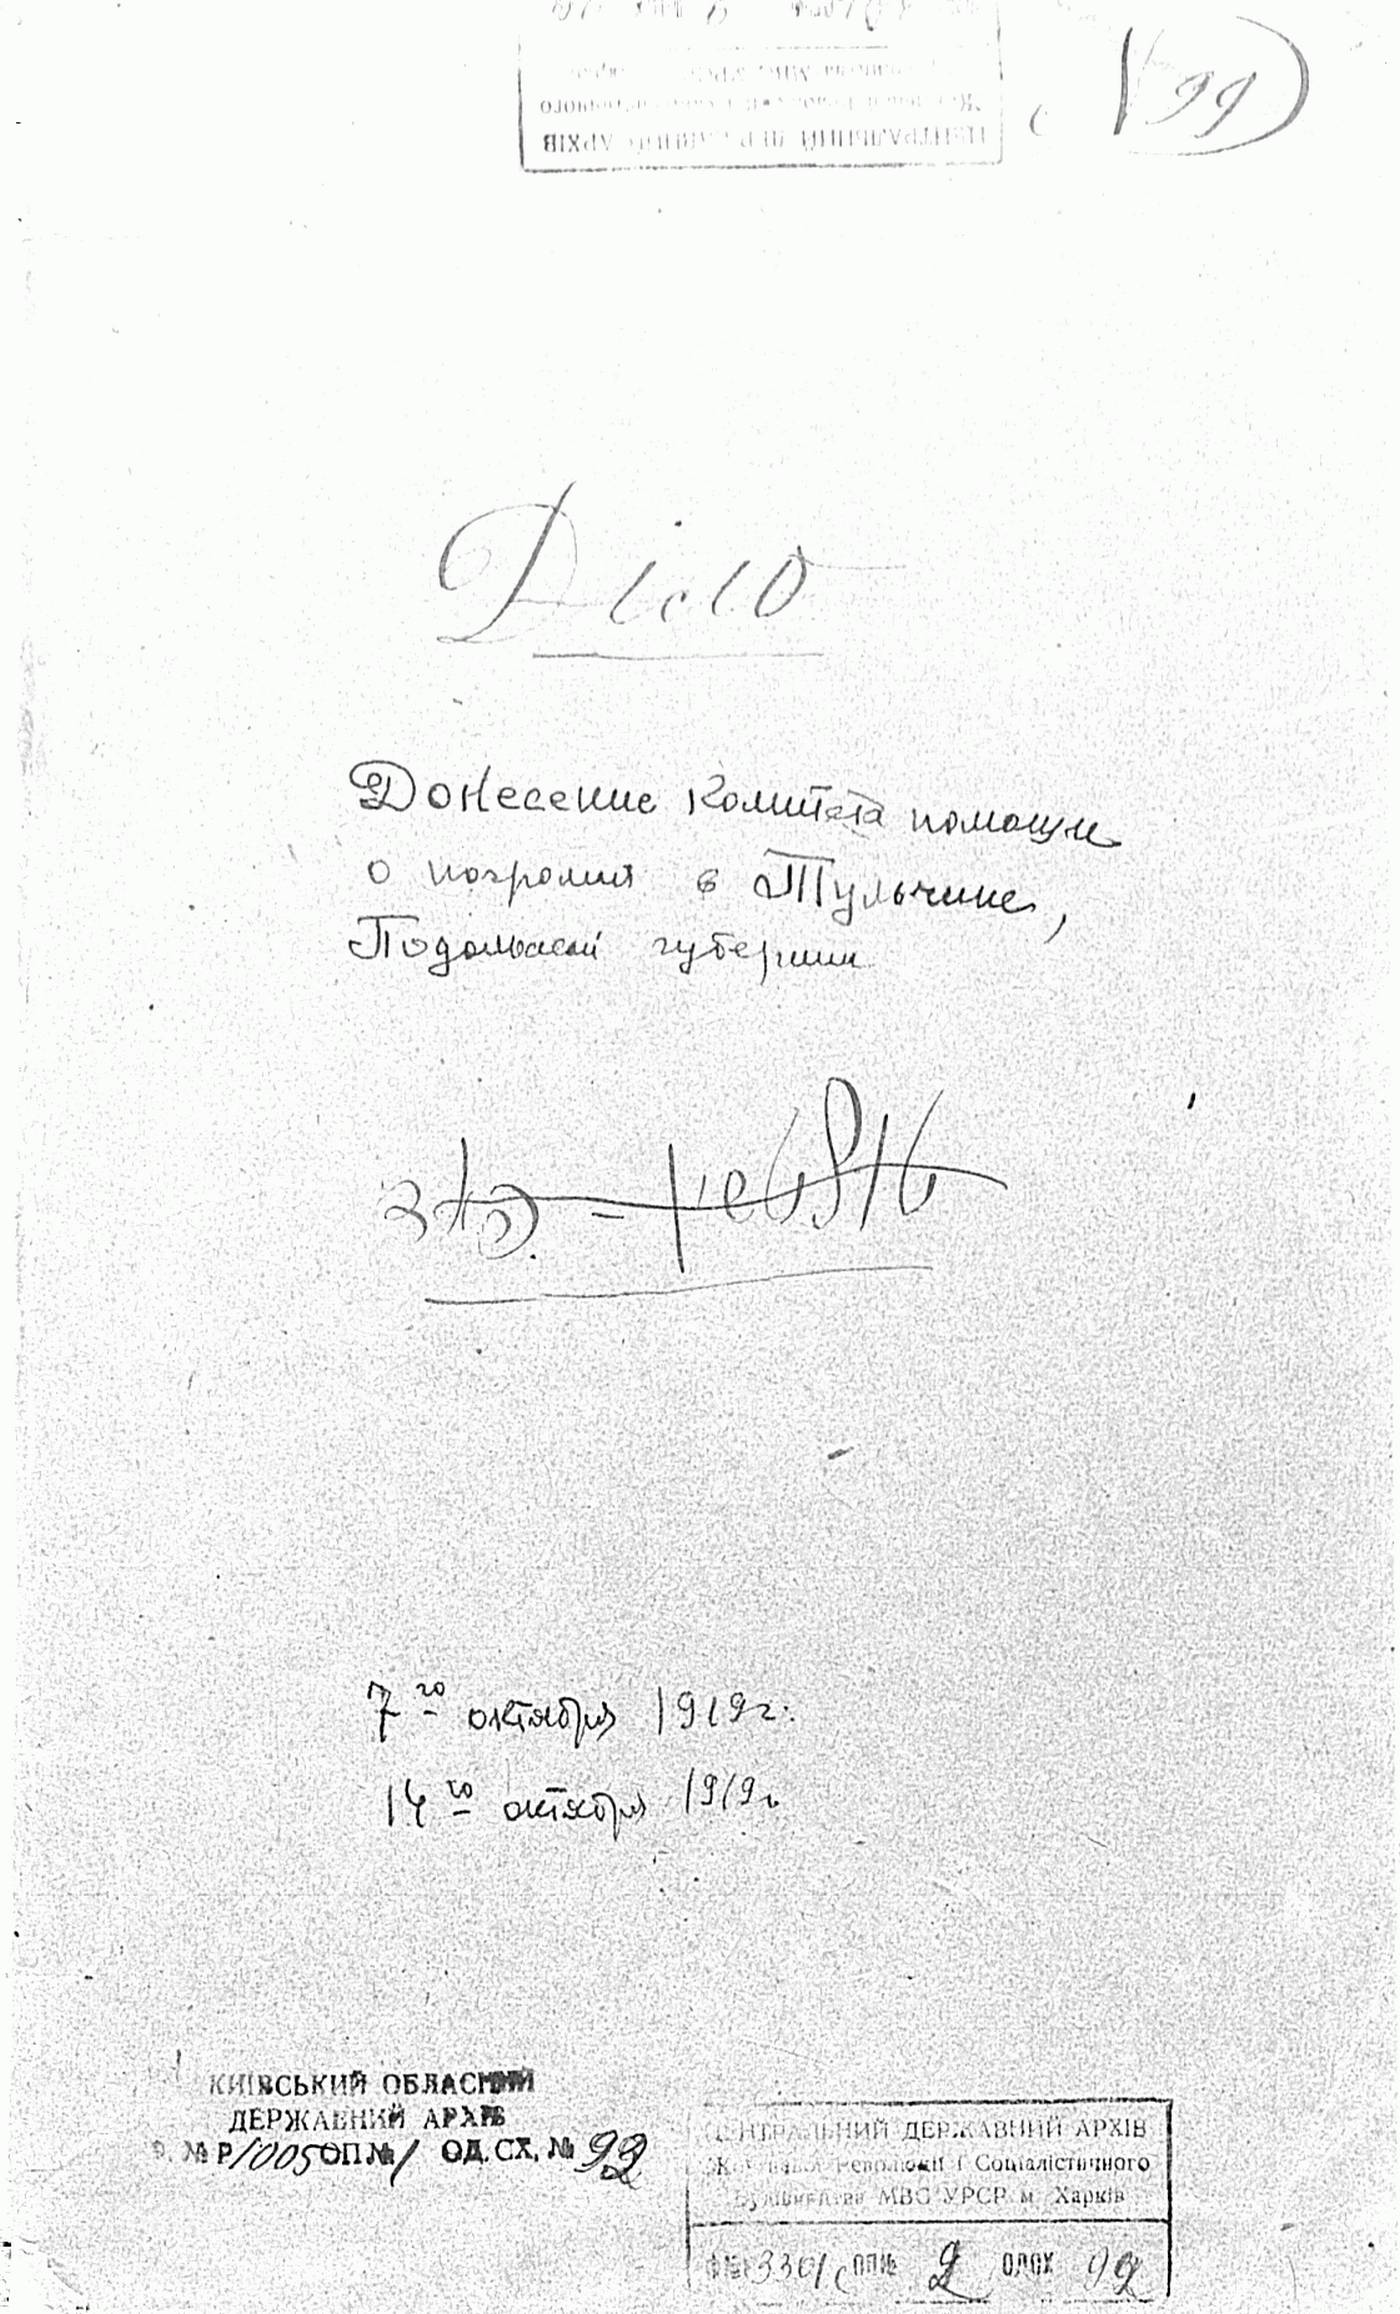 99
ЦЕНТРАЛЬНИЙ ДЕРЖАВНИЙ АРХІВ
Діло
Донесение комитета помощи
о погромах в Тульчине,
Подольской губернии
7го октября 1919г.
14го октября 1919г
КИЇВСЬКИЙ ОБЛАСНИЙ
ДЕРЖАВНИЙ АРХІВ
Ф. № Р1005 ОП № 1 ОД. СХ. № 92
ЦЕНТРАЛЬНИЙ ДЕРЖАВНИЙ АРХІВ
Жовтневої Революції і Соціалістичного
Будівництва МВС УРСР м Харків
3301с ОП № 2 ОДСХ 92